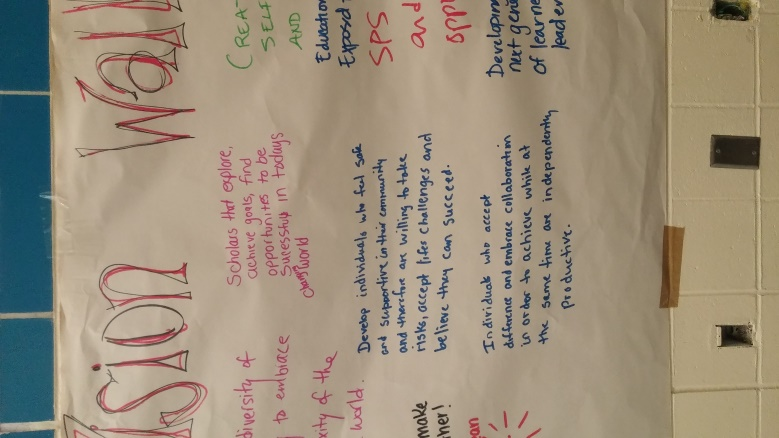 Vision Wall
diversity of
to embrace
of the
world.
make
Scholars that explore,
achieve goals, find
opportunites to be
in todays
world
Develop individuals who feel safe
and supportive in their community
and therefore are willing to take
risks, accept lifes challenges and
believe they can succeed.
Individuals who accept
difference and embrace collaboration
in order to achieve while at
the same time are independently
productive.
CREA-
SELF
AND
Education
Expose
SPS
and
opp
Developm
next gene
of learne
leader